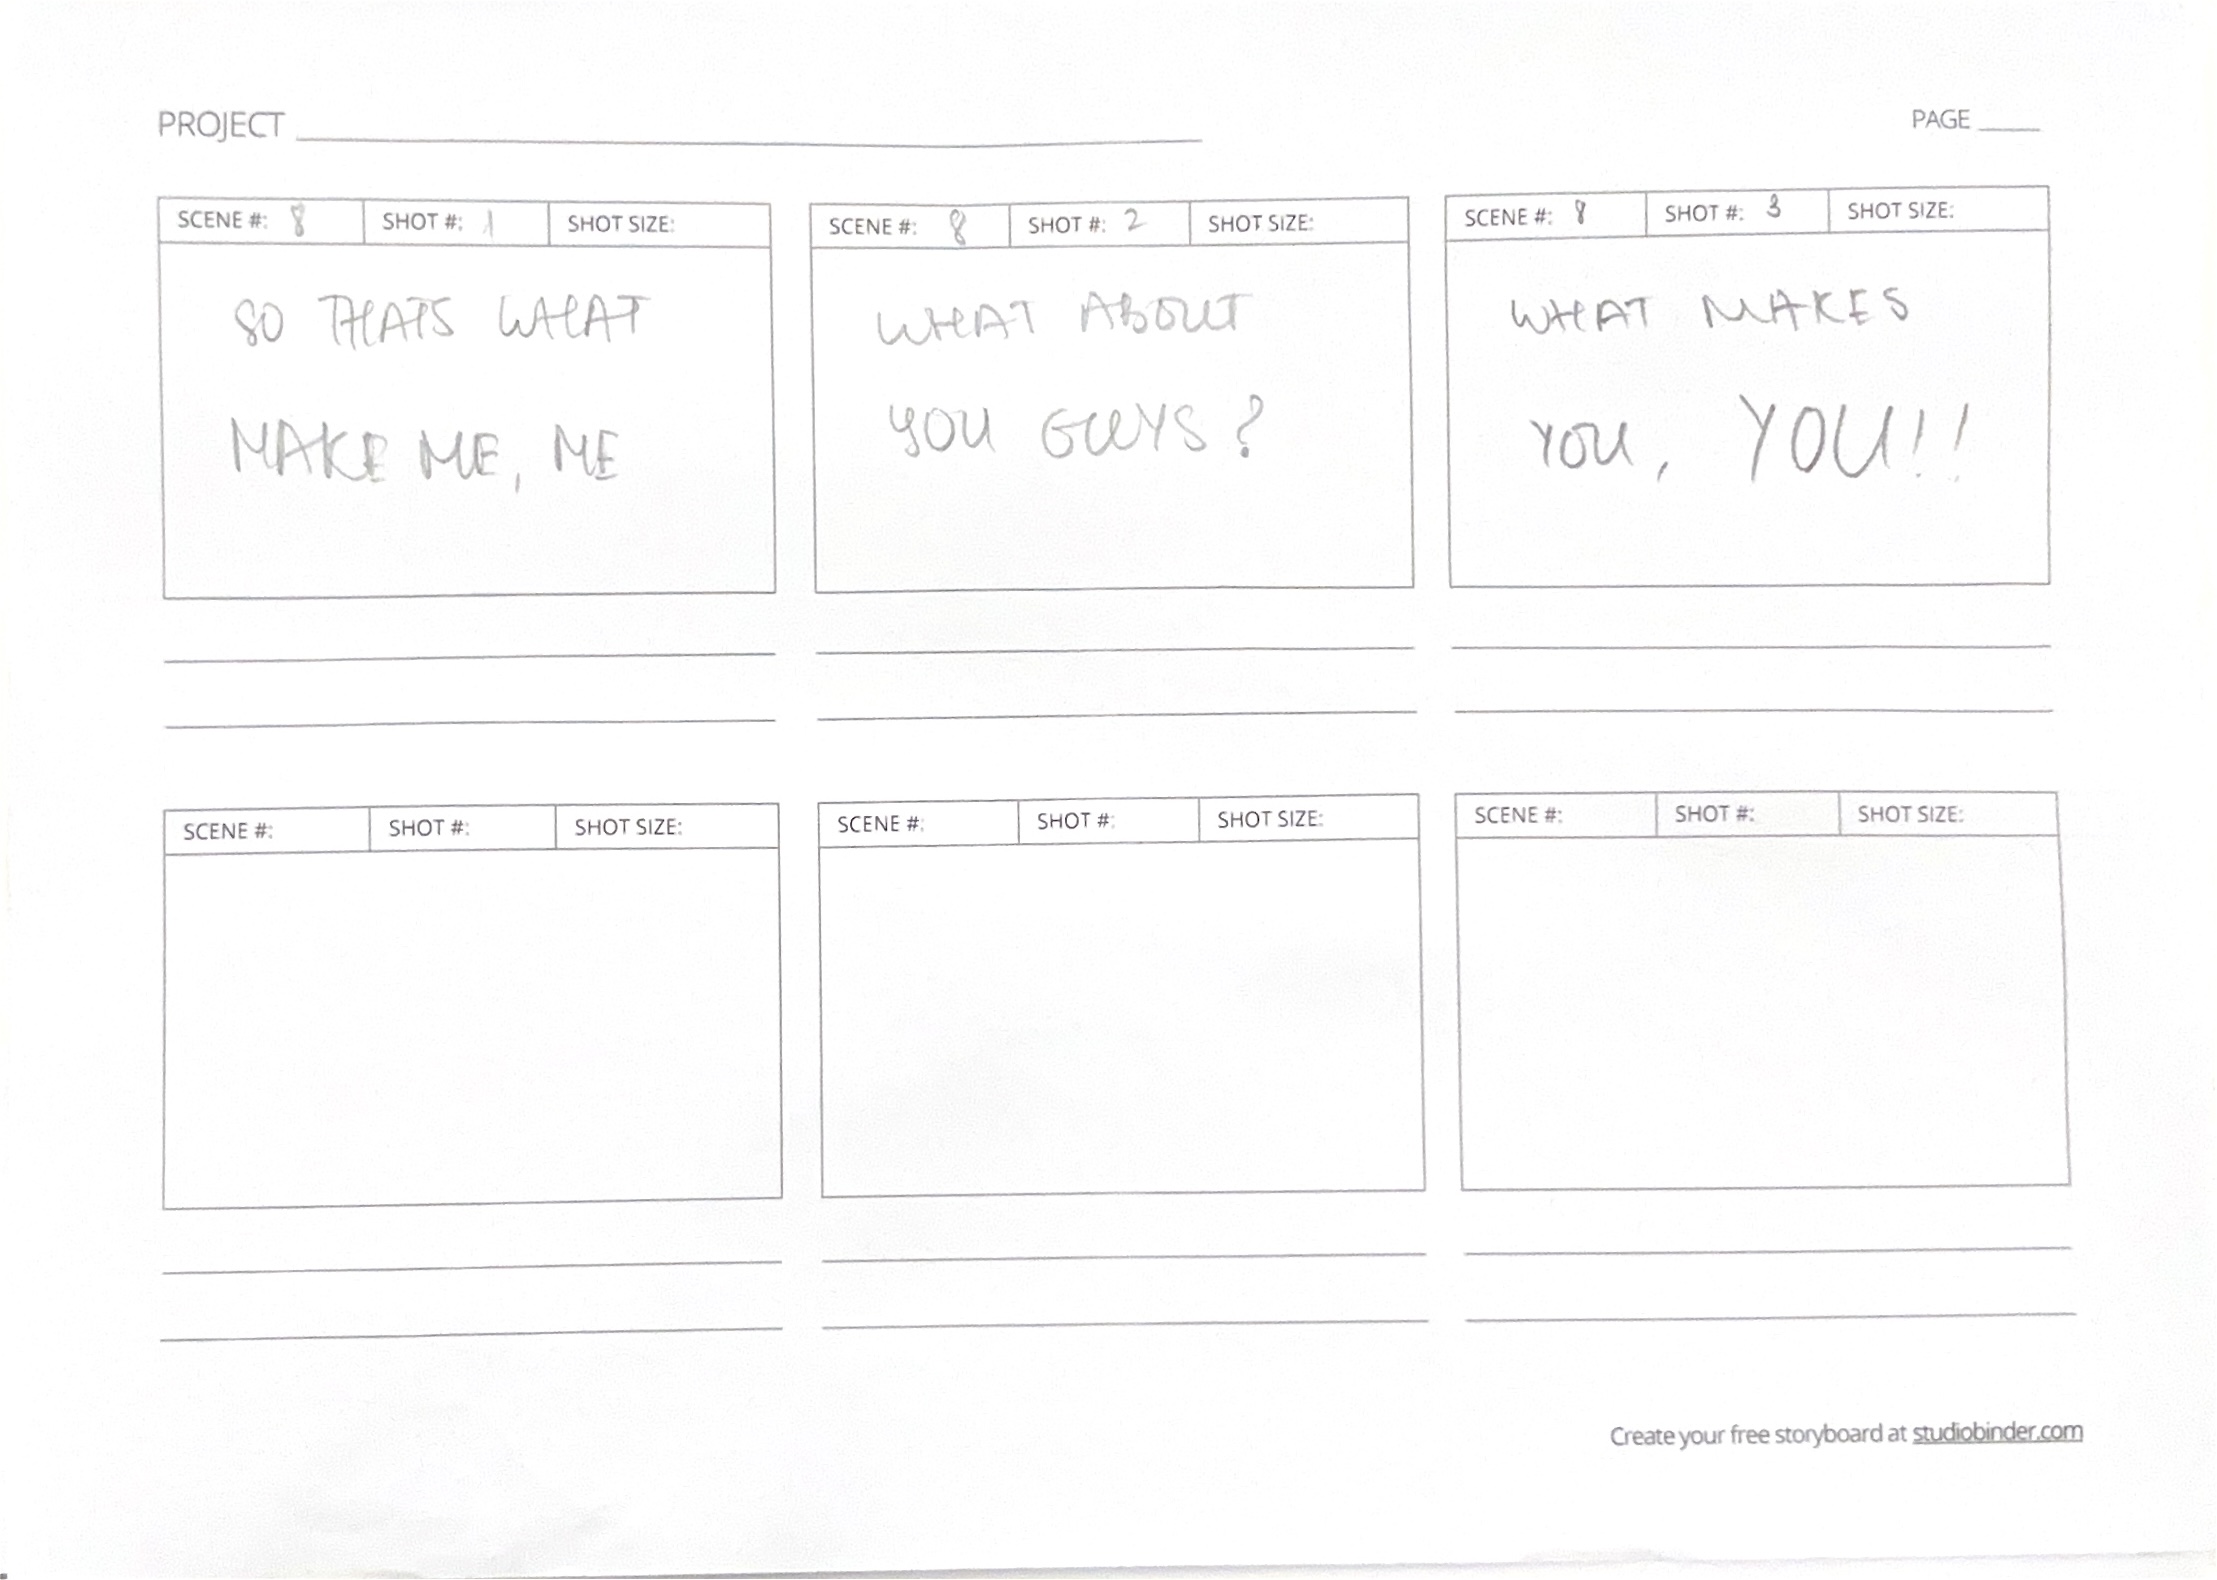 PROJECT
PAGE
SCENE #: 8 SHOT #: 1 SHOT SIZE:
SO THATS WHAT
MAKE ME, ME
SCENE #: 8 SHOT #: 2 SHOT SIZE:
WHAT ABOUT
YOU GUYS?
SCENE #: 8 SHOT #: 3 SHOT SIZE:
WHAT MAKES
YOU, YOU!!
SCENE #: SHOT #: SHOT SIZE:
SCENE #: SHOT #: SHOT SIZE:
SCENE #: SHOT #: SHOT SIZE:
Create your free storyboard at studiobinder.com